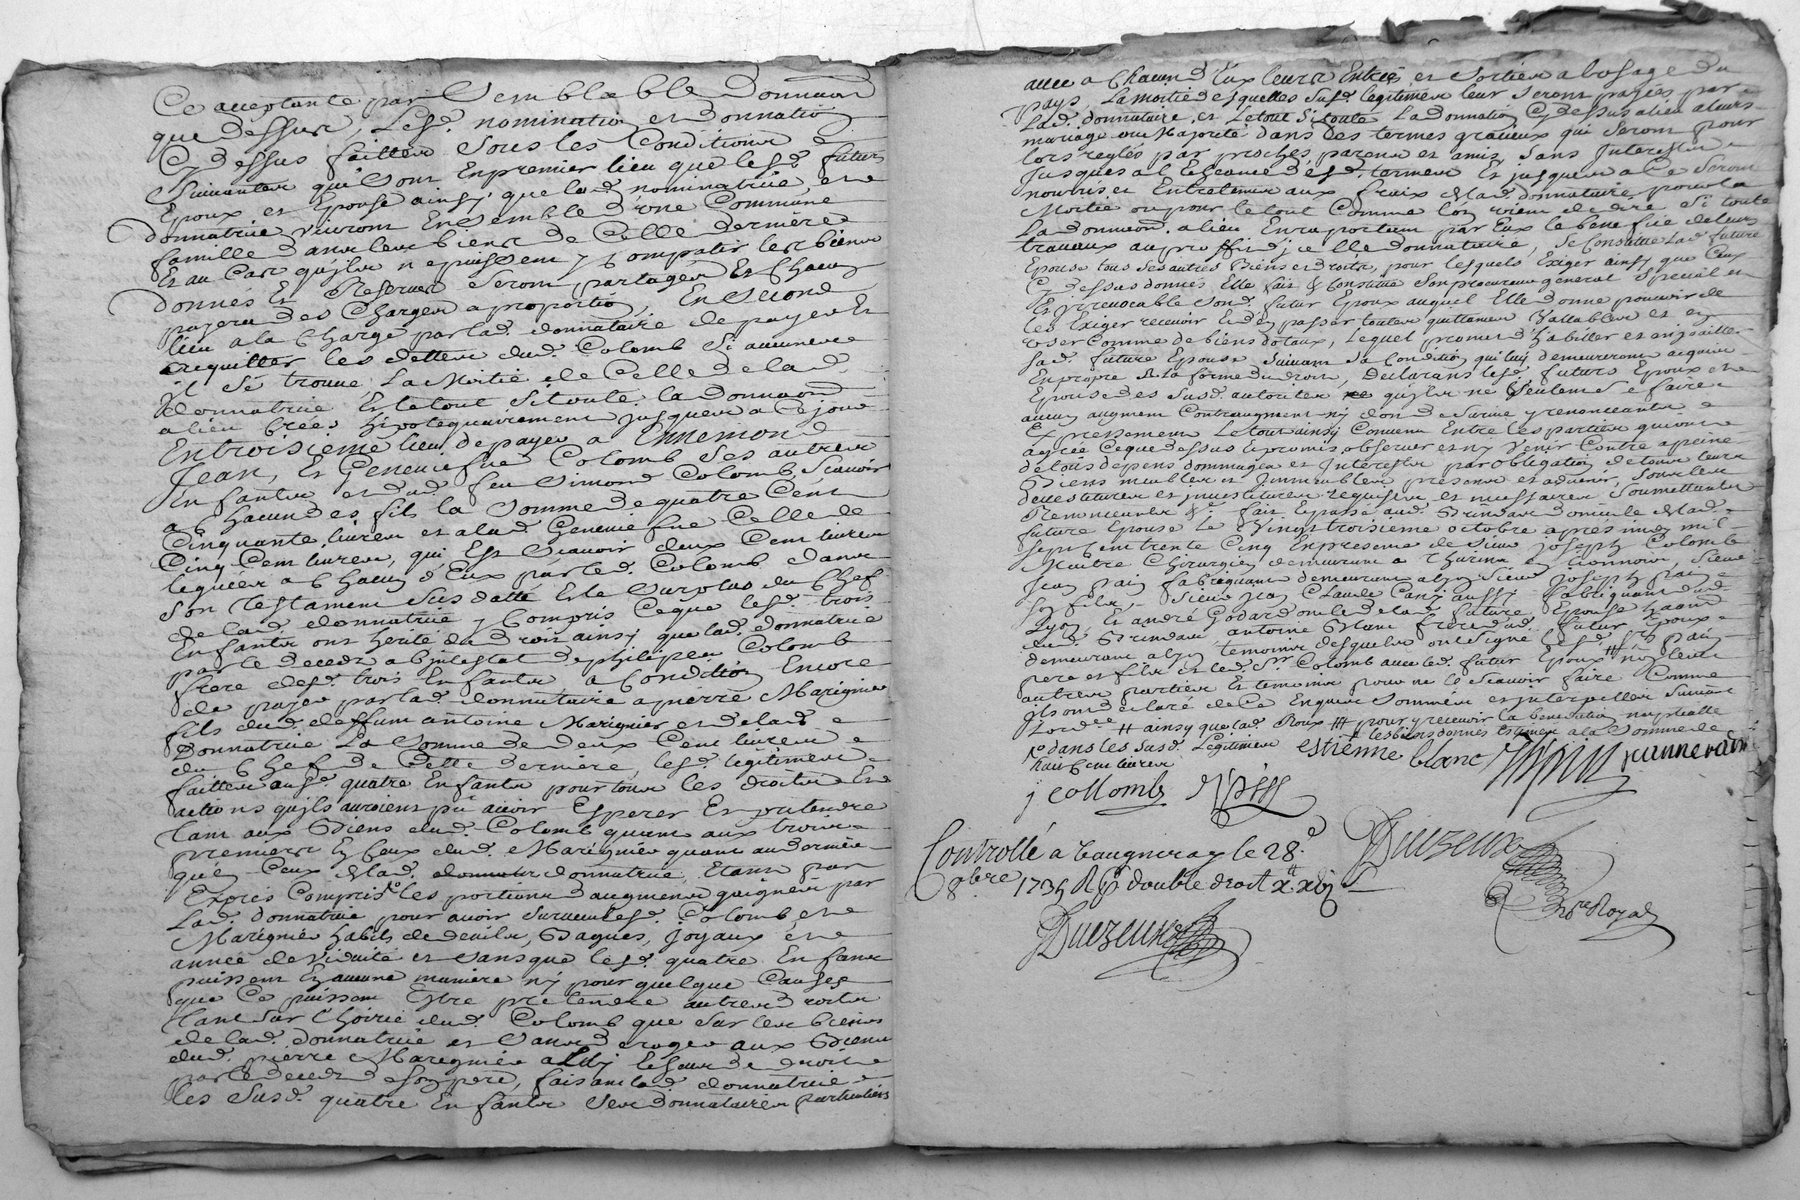 Ce acceptante par Semblable Donnaõn
que dessus, Lesd. nomination et donnation
Cy dessus faittes sous les Conditions
Suivantes qui sont En premier lieu que lesd. futurs
Epoux et Epouse ainsy que lad. nominatrice, et
donnatrice vivront Ensemble d'une Commune
famille dans les biens de Celle derniere
Et au Cas quils ne puissent y Compatir les biens
donnés Et Reservés seront partagés Et Chacun
payera des Charges a proportion, En Second
lieu a la Charge par lad. donnataire de payer Et
acquitter les dettes dud. Colomb si aucunes
il se trouve, La Moitié de Celle de lad.
donnatrice, Et le tout si toute la donnaõn
a lieu Créés hipotequairement jusques a Ce jour
En troisième lieu de payer a Ennemond
Jean, Et Genevieſve Colomb ses autres
Enfants et dud. feu Simond Colomb Sçavoir
a Chacun des fils la Somme de quatre Cent
Cinquante livres et a lad. Genevieſve Celle de
Cinq Cent livres, qui Est Scavoir deux Cent livres
leguées a Chacun d'Eux par led. Colomb dans
Son testament Susdatté Et le Surplus du Chef
de lad. donnatrice y Compris Ceque lesd. trois
Enfants ont hérité du droit ainsy que lad. donnatrice
par le decedz abintestat de philipes Colomb
frere desd. trois Enfants a Condition Encore
de payer par lad. donnataire a pierre Marignier
fils dud. deffunt antoine Marignier et de lad.
Donnatrice La Somme de deux Cent livres
du Chef de Cette derniere, lesd. légitimes
faittes ausd. quatre Enfants pour tous les droits Et
actions quils auroient pû avoir Esperer Et pretendre
tant aux Biens dud. Colomb quant aux trois
premiers Et Ceux dud. Marignier quant au dernier
qu'en Ceux de lad. donnatrice, Etant par
Exprés Compris les portions d'augment gaignées par
Lad. donnatrice pour avoir survecu lesd. Colomb et
Marignier habits de deuils, Bagues, joyaux et
année de viduité et sans que lesd. quatre Enfants
puissent En aucune manière ny pour quelque Causes
que Ce puissent Estre pretendre autres droits
tant sur l'hoirie dud. Colomb que sur les biens
de lad. donnatrice et sans deroger aux Biens
dud. pierre Marignier a luy Echus de droit
par le decedz de son pere, faisant lad. donnatrice
les susd. quatre Enfants ses donnataires particuliers
avec a Chacun d'Eux leurs Entrées et Sorties a l'usage du
pays, La moitié desquelles susd. legitimes leur seront payées par
Lad. donnataire, et le tout si toute La donnation Cy dessus a lieu a leurs
mariage ou Majorité dans des termes gratieux qui seront pour
lors reglés par proches parens et amis, sans Interest
jusques a l'Echeance desd. termes Et jusques a Ce seront
nourris et Entretenus aux fraix de lad. donnataire, pour la
Moitié ou pour le tout Comme l'on vient de dire si toute
La donnaõn a lieu En raportant par Eux le beneficie de leurs
travaux au proffit d'jcelle donnataire, Se Constitue Lad. future
Epouse tous ses autres Biens et droits, pour lesquels Exiger ainsy que Ceux
Cy dessus donnés Elle fait & Constitue son procureur general special et
Et jrrevocable sond. futur Epoux auquel Elle donne pouvoir de
les Exiger recevoir Et d'En passer toutes quittances Vallables et en
user Comme de biens dotaux, Lequel promet d'habiller et enjoailler
sad. future Epouse suivant sa Condition qui luy demeureront acquis
En propre a la forme du droit, Declarants lesd. futurs Epoux et
Epouse des susd. autorités quils ne veulent se faire
aucun augment Contraugment ny don de survie y renonceants
Expressement Le tout ainsy Convenu Entre les parties qui ont
agréé Ceque dessus Et promis observer et ny Venir Contre a peine
de tous depens dommages et Interests par obligation de tous leurs
Biens meubles et Immeubles presents et advenir, sous les
devestitures et investitures requises et necessaires Soumettants
Renonceants &c. fait Et passé aud. Brindas domicile de lad.
future Epouse Le Vingt troisieme octobre aprés midy mil
sept Cent trente Cinq En presence de Sieur joseph Colomb
Maitre Chirurgien demeurant a Thurins En lionnois, Sieur
jean pain fabriquant demeurant a lyon Sieur joseph pain
son fils, Sieur jean Claude aussy fabriquant aud.
Lyon, Et andré Godard oncle de lad. future Epouse
aud. Brindas antoine Blanc frere dud. futur Epoux
demeurant a lyon temoins desquels ont signé lesd. Srs pain
pere et fils et led. Sr. Colomb avec led. futur Epoux # non les
autres parties Et temoins pour ne le scavoir faire Comme
ils ont déclaré de Ce Enquis Sommés et interpellés suivant
L'ordce # ainsy que lad. Roux ## pour y recevoir la benediction nuptialle
dans les susd. Legitimes # les biens donnés Estimés a la Somme de
huit Cent livres estienne blanc jean pain
j collomb
Controllé a Vaugneray le 28e
8bre 1735 R. double droit
Duezeux
Nre Royal
Duezeux